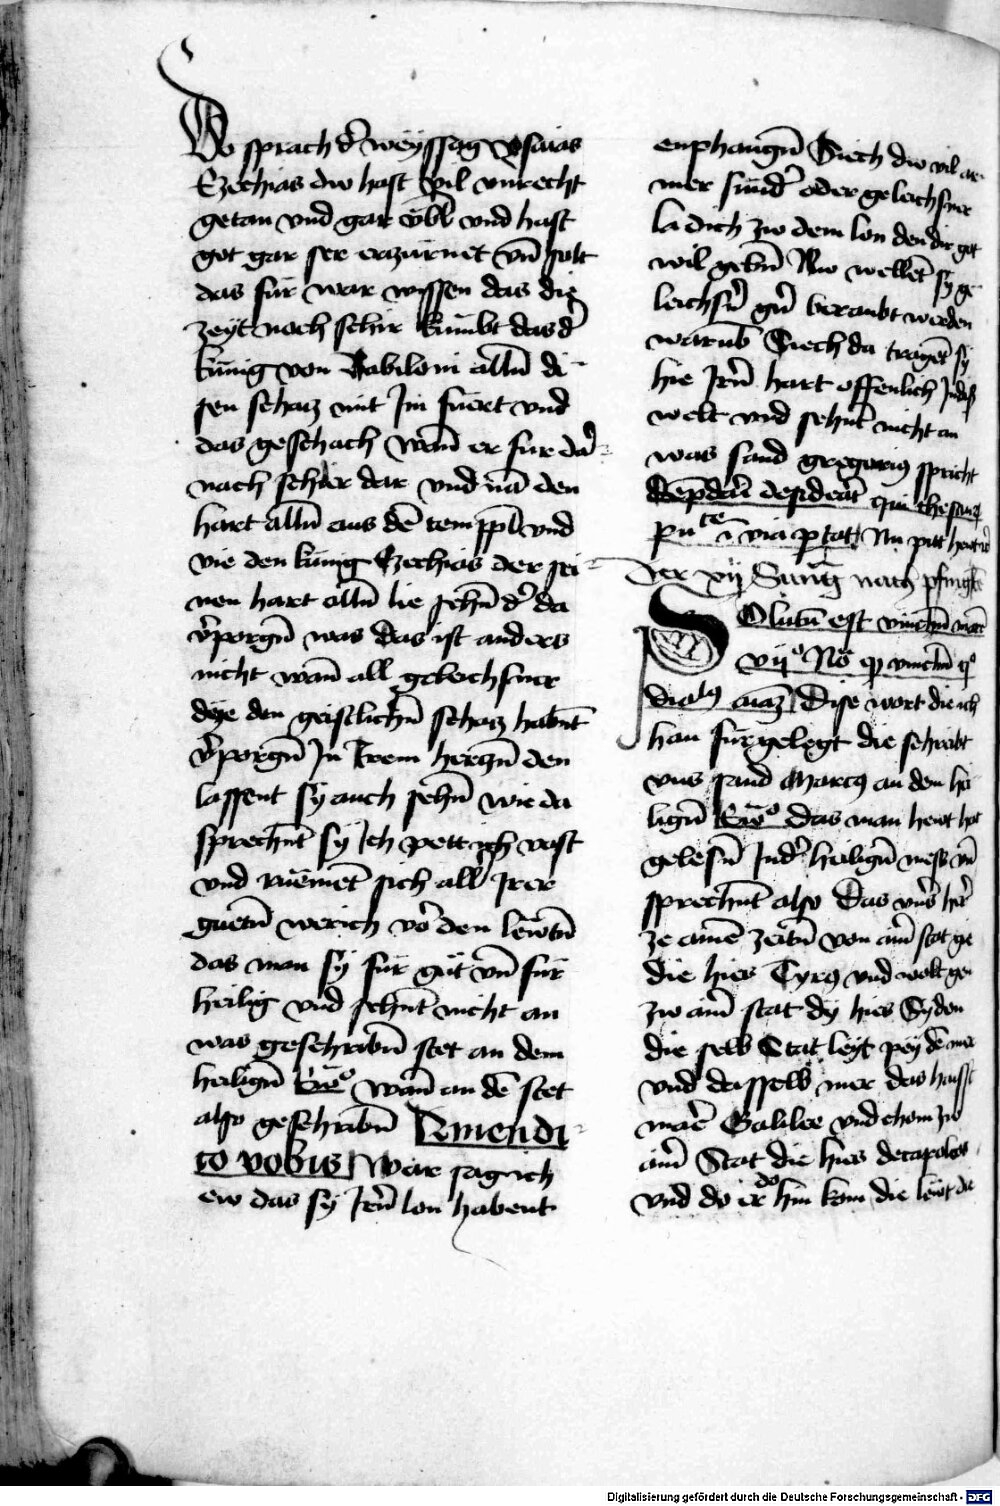 Do sprach d̕ weyssag ysaias
Ezechias dw hast vil vnrecht
getan vnd gar vbl vnd hast
got gar ser erzurnet vn̄ solt
das fur war wissen das die
zeyt noch schir kumbt das d̕
kunig von Babiloni alln̄ di
sen schatz mit Im fuert vnd
das geschach wan̄ er fur dar
nach schier dar vnd nā den
hart alln̄ aus dē templ vnd
vie den kunig Ezechias der sei
nen hart alln̄ lie sehn̄ d̕ da
v̕porgn̄ was Das ist anders
nicht wan̄ all geleichsner
dye den geistlichn̄ schatz habn̄t
v̕porgn̄ Jn Irem hertzn̄ den
lassent sy auch sehn̄ wie da
sprechn̄t sy Ich pett ich vast
vnd ruemēt sich all Irer
guetn̄ werich vō den lewtn̄
das man sy fur gut vn̄ fur
heilig vnd sehn̄t nicht an
was geschribn̄ stet an dem
heilign̄ Ewo wan̄ an dē stet
also geschribn̄ Amen di
co vobis War sag ich
ew das sy Irn̄ lon habent
enphangn̄ Siech dw vil ar
mer sund̕ oder geleichsner
la dich zw dem lon den dir got
wil gebn̄ Nw wellēt sy ge
leichsn̄ gern̄ beraubt werden
warūb Siech da tragēt sy
hie Irn̄ hart offenlich
welt vnd sehn̄t nicht an
was sand gregorius spricht
desiderat qui thesaurū
pu^ce ī via portat Nu pitt
Der xij Suntg nach pfingstn̄
Solutū est vinculū marci
vijo
Dise wort die ich
han fur gelegt die schreibt
vns sand Marcus an dem hei
lign̄ Ewo das man hewt hat
gelesn̄ Ind̕ heilign̄ mess vn̄
sprechn̄t also Das vns̕ her̕
ze ainē zeitn̄ von aim̄ stat gi
die hies Tyrus vnd wolt gen
zw aim̄ stat dy hies Sydon
die selb Stat leyt pey dē mer
vnd dasselb mer das haisst
Galilee vnd chom zw
aim̄ Stat die hies decapoleos
vnd do er do hin kom die lewt die
Digitalisierung gefördert durch die Deutsche Forschungsgemeinschaft - DFG